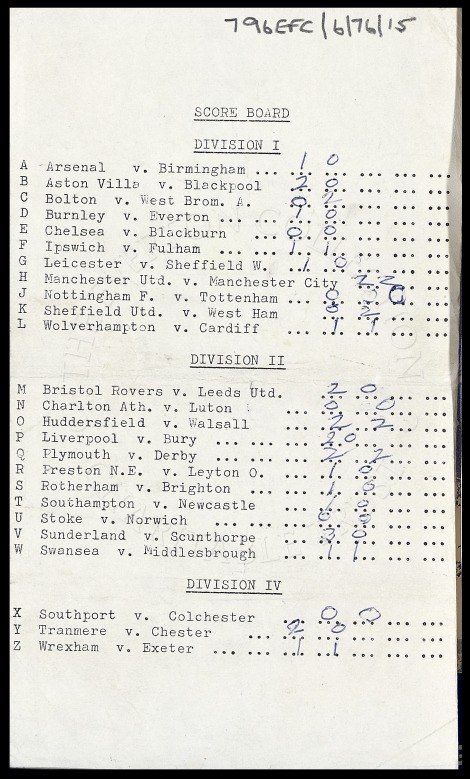 796EFC/6/76/15
SCORE BOARD
DIVISION I
A Arsenal v. Birmingham ... 1 0
B Aston Villa v. Blackpool 2 0
C Bolton v. West Brom. A. 0 2
D Burnley v. Everton ... 1 0
E Chelsea v. Blackburn ... 0 0
F Ipswich v. Fulham ... 1 1
G Leicester v. Sheffield W. ... 1 0
H Manchester Utd. v. Manchester City 2 2
J Nottingham F. v. Tottenham ... 0 0
K Sheffield Utd. v. West Ham 2
L Wolverhampton v. Cardiff ... 1 1
DIVISION II
M Bristol Rovers v. Leeds Utd. 2 0
N Charlton Ath. v. Luton ... 0 0
O Huddersfield v. Walsall ... 2 2
P Liverpool v. Bury ... ... 2 0
Q Plymouth v. Derby ... ... 2 2
R Preston N.E. v. Leyton O. ... 1 0
S Rotherham v. Brighton ... ... 1 0
T Southampton v. Newcastle ... 1 0
U Stoke v. Norwich ... ... 0 0
V Sunderland v. Scunthorpe ... 3 0
W Swansea v. Middlesbrough ... 1 1
DIVISION IV
X Southport v. Colchester ... 0 0
Y Tranmere v. Chester ... 2 0
Z Wrexham v. Exeter ... ... ... 1 1